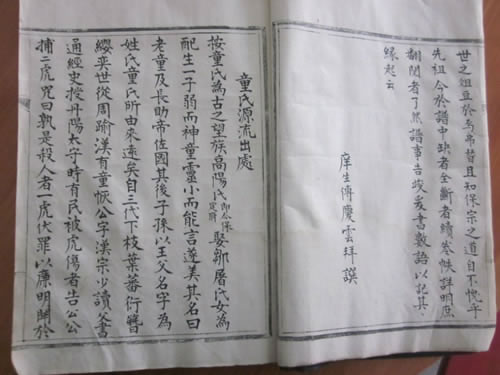 世之俎豆於昔且知保宗之道自不愧乎
先祖今於譜中缺者全斷者續卷帙詳明庶
翻閱者了然譜事告竣爰書數語以記其
緣起云
庠生傅慶雲拜譔
童氏源流出處
按童氏為古之望族高陽氏即今保定府娶鄒屠氏女為
配生一子弱而神童靈小而能言遂美其名曰
老童及長助帝佐國其後子孫以王父名字為
姓氏童氏所由來遠矣自三代下枝葉蕃衍簪
纓奕世從周踰漢有童恢公字漢宗少讀父書
通經史授丹陽太守時有民被虎傷者告公公
捕二虎咒曰孰是殺人者一虎伏罪以廉明聞於